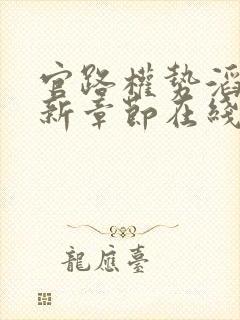 官路權勢滔
新章節在綫
龍應臺